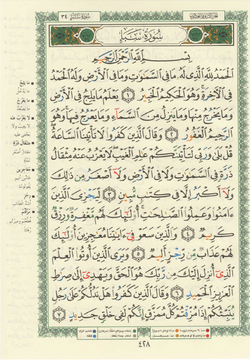 سُورَةُ سَبَإٍ
بِسْمِ اللَّهِ الرَّحْمَٰنِ الرَّحِيمِ
الْحَمْدُ لِلَّهِ الَّذِي لَهُ مَا فِي السَّمَاوَاتِ وَمَا فِي الْأَرْضِ وَلَهُ الْحَمْدُ
فِي الْآخِرَةِ وَهُوَ الْحَكِيمُ الْخَبِيرُ ١ يَعْلَمُ مَا يَلِجُ فِي الْأَرْضِ
وَمَا يَخْرُجُ مِنْهَا وَمَا يَنزِلُ مِنَ السَّمَاءِ وَمَا يَعْرُجُ فِيهَا وَهُوَ
الرَّحِيمُ الْغَفُورُ ٢ وَقَالَ الَّذِينَ كَفَرُوا لَا تَأْتِينَا السَّاعَةُ
قُلْ بَلَىٰ وَرَبِّي لَتَأْتِيَنَّكُمْ عَالِمِ الْغَيْبِ لَا يَعْزُبُ عَنْهُ مِثْقَالُ
ذَرَّةٍ فِي السَّمَاوَاتِ وَلَا فِي الْأَرْضِ وَلَا أَصْغَرُ مِن ذَٰلِكَ
وَلَا أَكْبَرُ إِلَّا فِي كِتَابٍ مُّبِينٍ ٣ لِّيَجْزِيَ الَّذِينَ
آمَنُوا وَعَمِلُوا الصَّالِحَاتِ أُولَٰئِكَ لَهُم مَّغْفِرَةٌ وَرِزْقٌ
كَرِيمٌ ٤ وَالَّذِينَ سَعَوْا فِي آيَاتِنَا مُعَاجِزِينَ أُولَٰئِكَ
لَهُمْ عَذَابٌ مِّن رِّجْزٍ أَلِيمٌ ٥ وَيَرَى الَّذِينَ أُوتُوا الْعِلْمَ
الَّذِي أُنزِلَ إِلَيْكَ مِن رَّبِّكَ هُوَ الْحَقَّ وَيَهْدِي إِلَىٰ صِرَاطِ
الْعَزِيزِ الْحَمِيدِ ٦ وَقَالَ الَّذِينَ كَفَرُوا هَلْ نَدُلُّكُمْ عَلَىٰ رَجُلٍ
يُنَبِّئُكُمْ إِذَا مُزِّقْتُمْ كُلَّ مُمَزَّقٍ إِنَّكُمْ لَفِي خَلْقٍ جَدِيدٍ ٧
٤٢٨